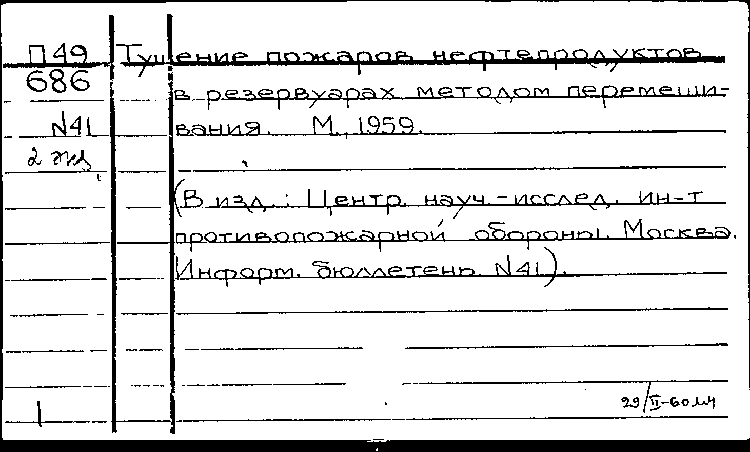 П49 Тушение пожаров нефтепродуктов
686 в резервуарах методом перемеши-
N41 вания. М., 1959.
2 экз
(В изд.: Центр. науч.-исслед. ин-т
противопожарной обороны. Москва.
Информ. бюллетень N41).
29/II-60
1